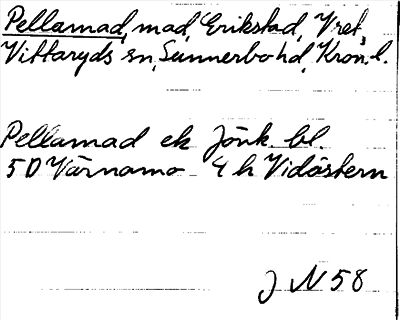 Pellamad, mad, Erikstad, Vret,
Vittaryds sn, Sunnerbo hd, Kron. l.
Pellamad ek Jönk. bl.
5D Värnamo 4h Vidöstern
J N 58